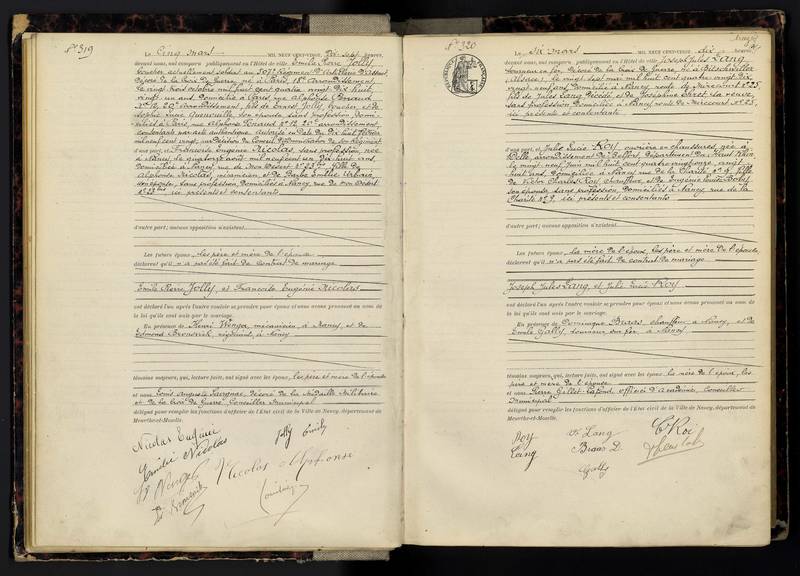 N° 319
Le Cinq mars MIL NEUF CENT-VINGT, Dix sept heures,
devant nous, ont comparu publiquement en l'Hôtel de ville Emile Pierre Jolly
boucher actuellement soldat au
décoré de la Croix de Guerre, né à Paris, 18e arrondissement
le vingt trois octobre mil huit cent quatre vingt dix huit,
vingt un ans, domicilié à Paris, rue Alphonse
N° 12, 20e arrondissement, fils de Ernest Jolly, boucher, et de
Sophie son épouse sans profession domi-
ciliés à Paris, rue Alphonse N° 12, 20e arrondissement,
consentants par acte authentique
mil neuf cent vingt, du Conseil d'Administration de son Régiment
d'une part, et Francoile Eugénie Nicolas, sans profession, née
à Nancy, le quatorze août mil neuf cent un, dix huit ans,
domiciliée à Nancy, rue Mon Désert fille de
Alphonse Nicolas, mécanicien, et de Barbe Emilie Urbain,
son épouse, sans profession, domiciliés à Nancy, rue de Mon Désert
ici présents et consentants
d'autre part; aucune opposition n'existant.
Les futurs époux, les père et mère de l'épouse
déclarent qu'il n'a pas été fait de contrat de mariage
Emile Pierre Jolly, et Francoile Eugénie Nicolas
ont déclaré l'un après l'autre vouloir se prendre pour époux et nous avons prononcé au nom de
la loi qu'ils sont unis par le mariage.
En présence de Henri Wenger, mécanicien, à Nancy, et de
Edmond à Nancy
témoins majeurs, qui, lecture faite, ont signé avec les époux, les père et mère de l'épouse
et nous Louis Auguste décoré de la Médaille Militaire
et de la Croix de Guerre, Conseiller Municipal
délégué pour remplir les fonctions d'officier de l'Etat civil de la Ville de Nancy, département de
Meurthe-et-Moselle.
Nicolas Eugénie
Jolly Emile
Emilie Nicolas
H Wenger
Nicolas Alphonse
N° 320
Le Six mars MIL NEUF CENT-VINGT, dix heures,
devant nous, ont comparu publiquement en l'Hôtel de ville Joseph Jules Lang
tourneur en fer, décoré de la Croix de Guerre, né à Bitschwiller
(Alsace), le vingt sept mai mil huit cent quatre vingt dix,
vingt neuf ans, domicilié à Nancy, route de Mirecourt N° 25,
fils de Jules Lang, décédé, et de Joséphine sa veuve,
sans profession, domiciliée à Nancy, route de Mirecourt N° 25,
ici présente et consentante
d'une part, et Julie Lucie Roy, ouvrière en chaussures, née à
Delle, arrondissement de Belfort, Département du Haut Rhin
le vingt neuf mil huit cent quatre vingt onze, vingt
huit ans, domiciliée à Nancy, rue de la Charité, N° 9, fille
de Victor Charles Roy, chauffeur, et de Eugénie
son épouse, sans profession, domiciliés à Nancy, rue de la
Charité N° 9, ici présents et consentants
d'autre part; aucune opposition n'existant.
Les futurs époux, la mère de l'époux, les père et mère de l'épouse,
déclarent qu'il n'a pas été fait de contrat de mariage
Joseph Jules Lang, et Julie Lucie Roy
ont déclaré l'un après l'autre vouloir se prendre pour époux et nous avons prononcé au nom de
la loi qu'ils sont unis par le mariage.
En présence de Dominique Braas, chauffeur, à Nancy, et de
Emile Gally, tourneur sur fer, à Nancy
témoins majeurs, qui, lecture faite, ont signé avec les époux, la mère de l'époux, les
père et mère de l'épouse
et nous Pierre Gillet-Lafond, officier d'Académie, Conseiller
Municipal
délégué pour remplir les fonctions d'officier de l'Etat civil de la Ville de Nancy, département de
Meurthe-et-Moselle.
Roy
Lang
C Roi
Lang
Braas D.
Gally